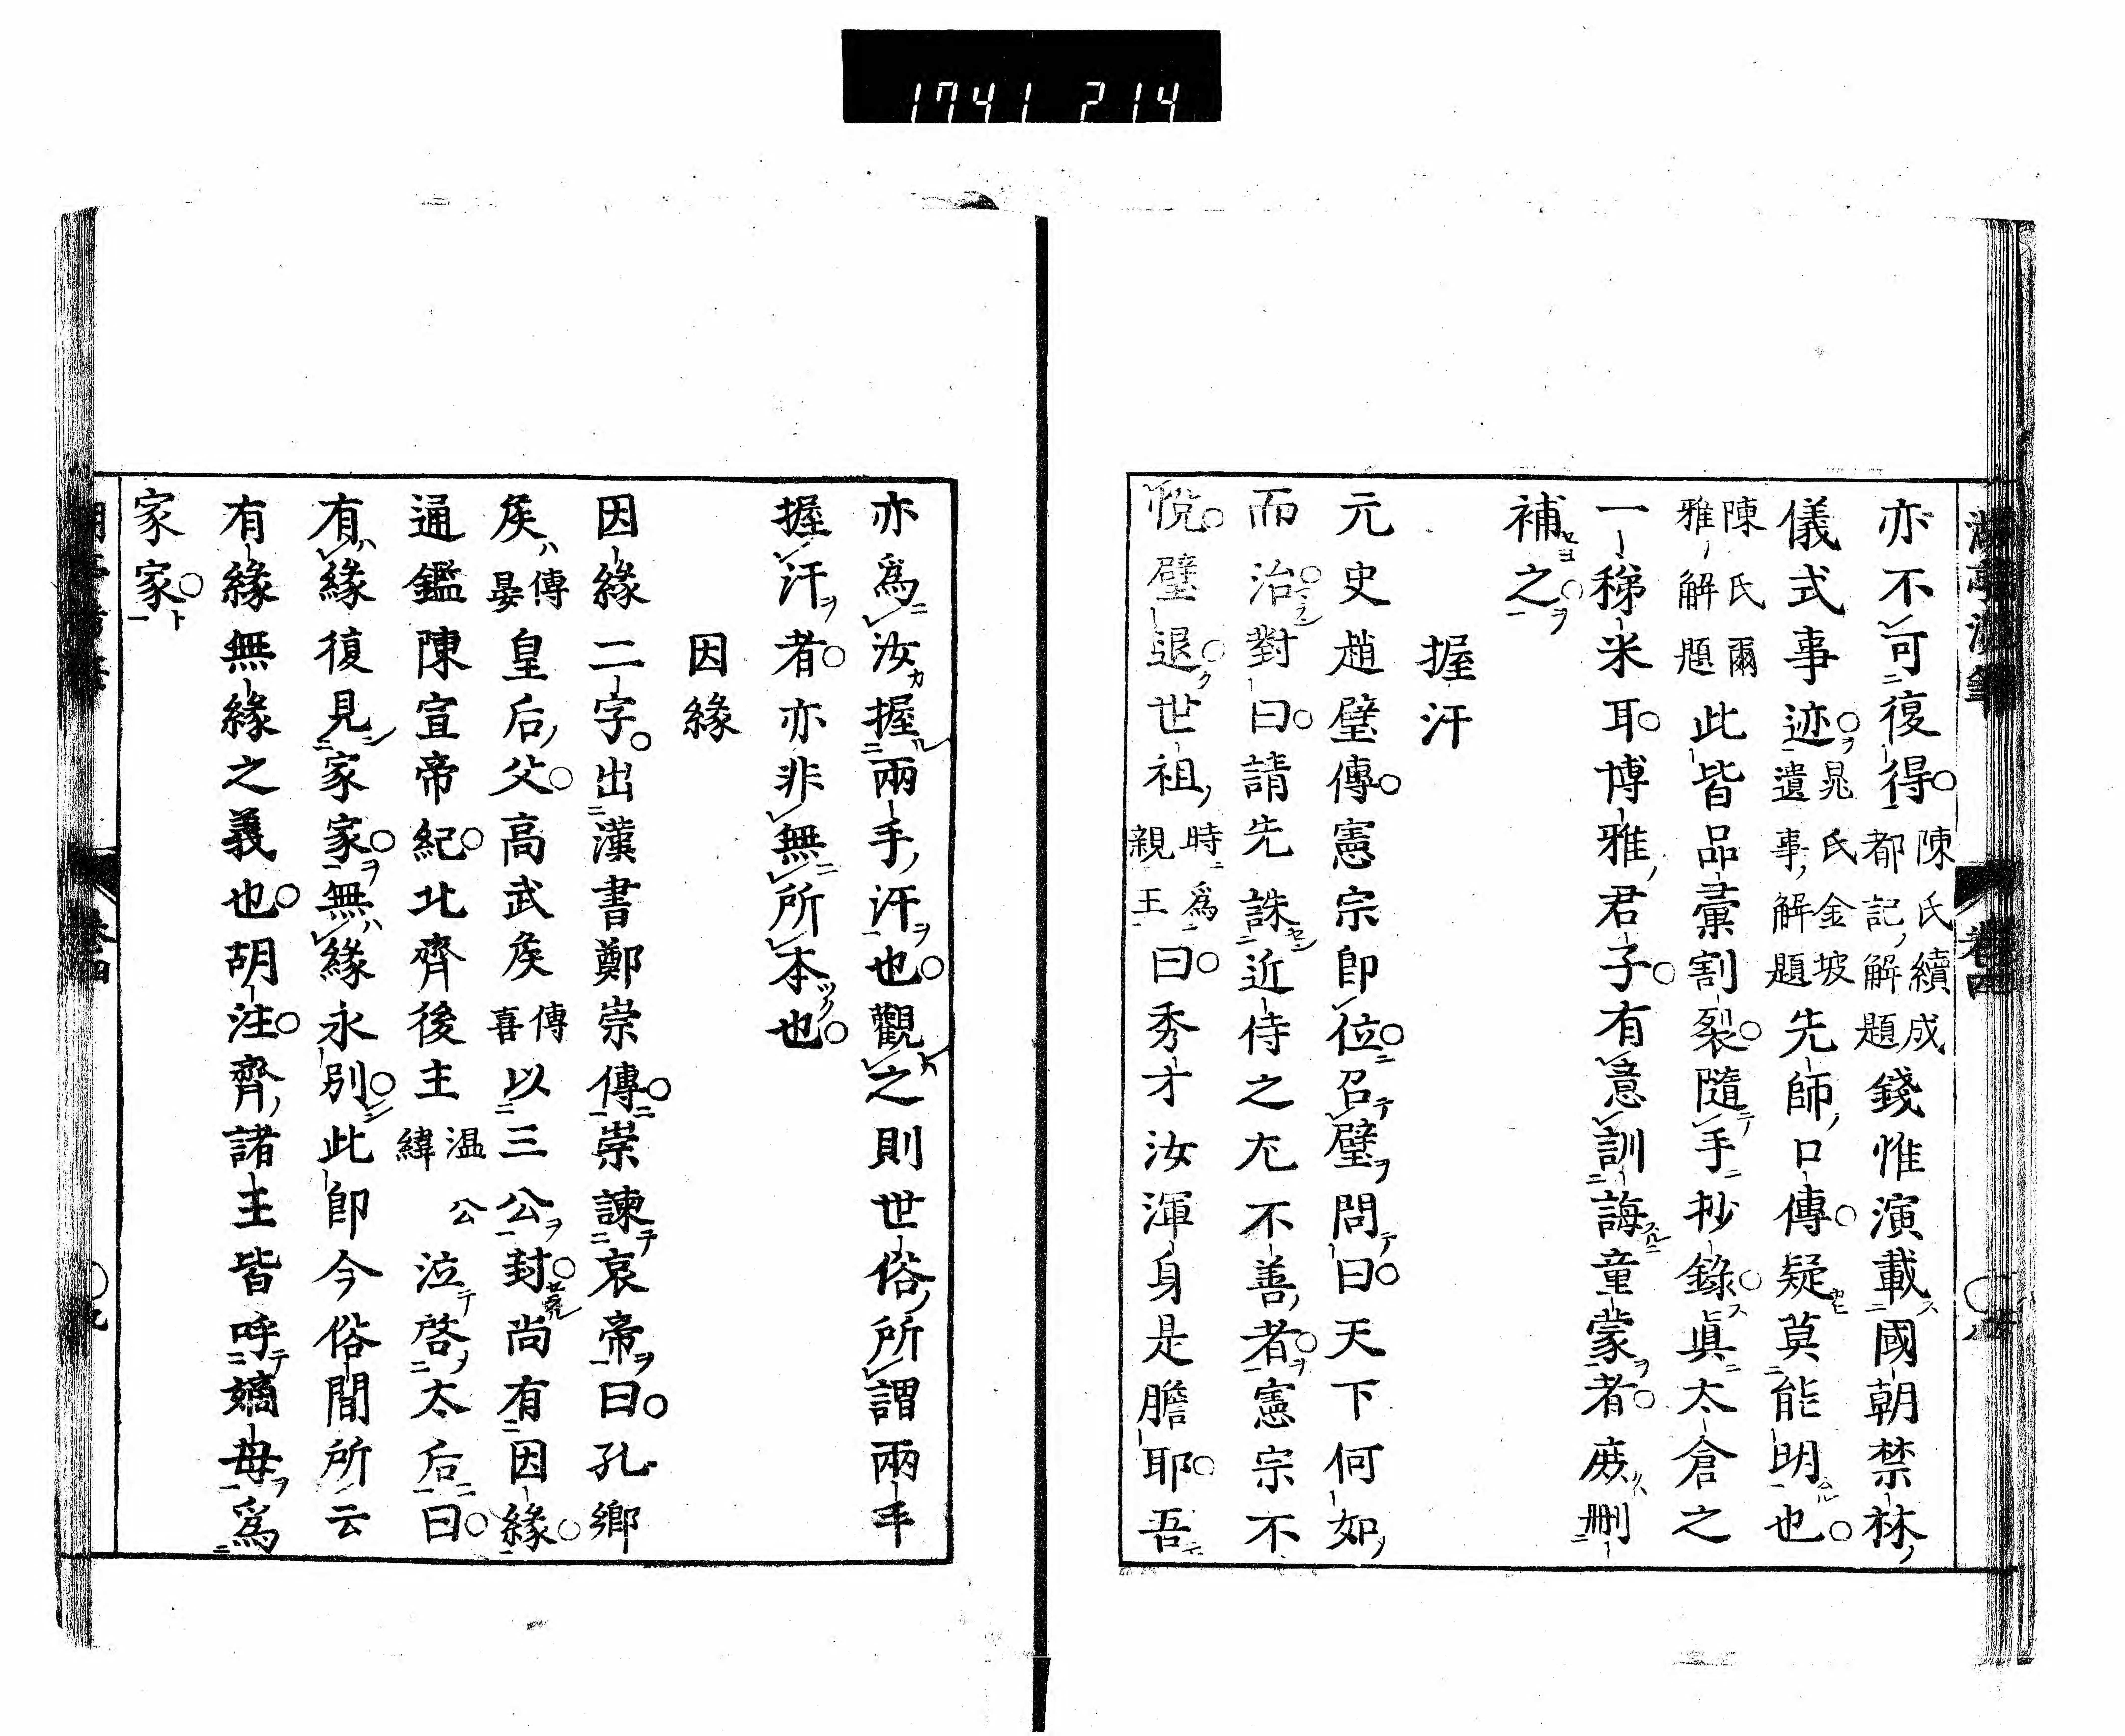 1741 214
亦不可復得陳氏續成都記解題錢惟演載國朝禁林
儀式事迹晁氏金坡遺事解題先師口傳疑莫能明也
陳氏爾雅解題此皆品彙割裂隨手抄錄眞太倉之
一稊米耳博雅君子有意訓誨童蒙者庻刪
補之
握汗
元史趙璧傳憲宗卽位召璧問曰天下何如
而治對曰請先誅近侍之尤不善者憲宗不
悅璧退世祖時爲親王曰秀才汝渾身是膽耶吾
亦爲汝握兩手汗也觀之則世俗所謂兩手
握汗者亦非無所本也
因緣
因緣二字出漢書鄭崇傳崇諫哀帝曰孔鄉
矦傅晏皇后父高武矦傅喜以三公封尚有因緣
通鑑陳宣帝紀北齊後主緯温公泣啓太后曰
有緣復見家家無緣永別此卽今俗間所云
有緣無緣之義也胡注齊諸王皆呼嫡母爲
家家
卷四